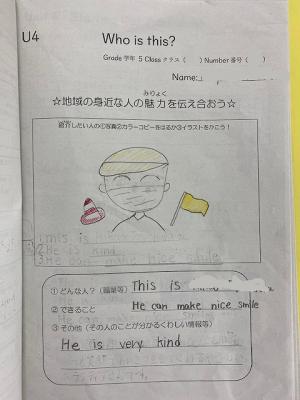 U4
Who is this?
Grade 学年 5 Class クラス ( ) Number 番号 ( )
Name:
みりょく
☆地域の身近な人の魅力を伝え合おう☆
紹介したい人の①写真②カラーコピーをはるか③イラストをかこう!
This is
He is kind
He can make nice smile
①どんな人?(職業等) This is
②できること He can make nice smile
③その他(その人のことが分かるくわしい情報等)
He is very kind